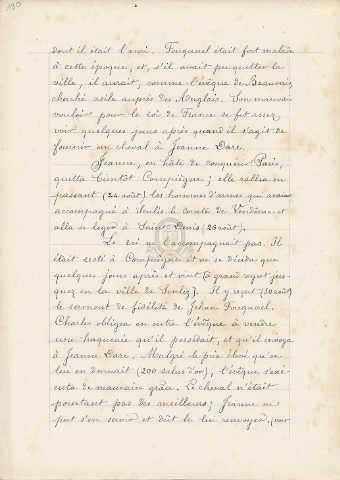 180
dont il était l'ami. Fouquerel était fort malade
à cette époque, et, s'il avait pu quitter la
ville, il aurait, comme l'évêque de Beauvais,
cherché asile auprès des Anglais. Son mauvais
vouloir pour le roi de France se fit assez
voir quelques jours après quand il s'agit de
fournir un cheval à Jeanne Darc.
Jeanne, en hâte de conquérir Paris,
quitta bientôt Compiègne; elle rallia en
passant (24 août) les hommes d'armes qui avaient
accompagné à Senlis le comte de Vendôme et
alla se loger à Saint-Denis (26 août).
Le roi ne l'accompagnait pas. Il
était resté à Compiègne et ne se décida que
quelques jours après et vint (à grand regret jus-
ques en la ville de Senlis). Il y reçut (30 août)
le serment de fidélité de Jehan Fouquerel.
Charles obligea en outre l'évêque à vendre
une haquenée qu'il possédait, et qu'il envoya
à Jeanne Darc. Malgré le prix élevé qu'on
lui en donnait (200 saluts d'or), l'évêque s'exé-
cuta de mauvaise grâce. Le cheval n'était
pourtant pas des meilleurs; Jeanne ne
put s'en servir et dût le lui renvoyer,